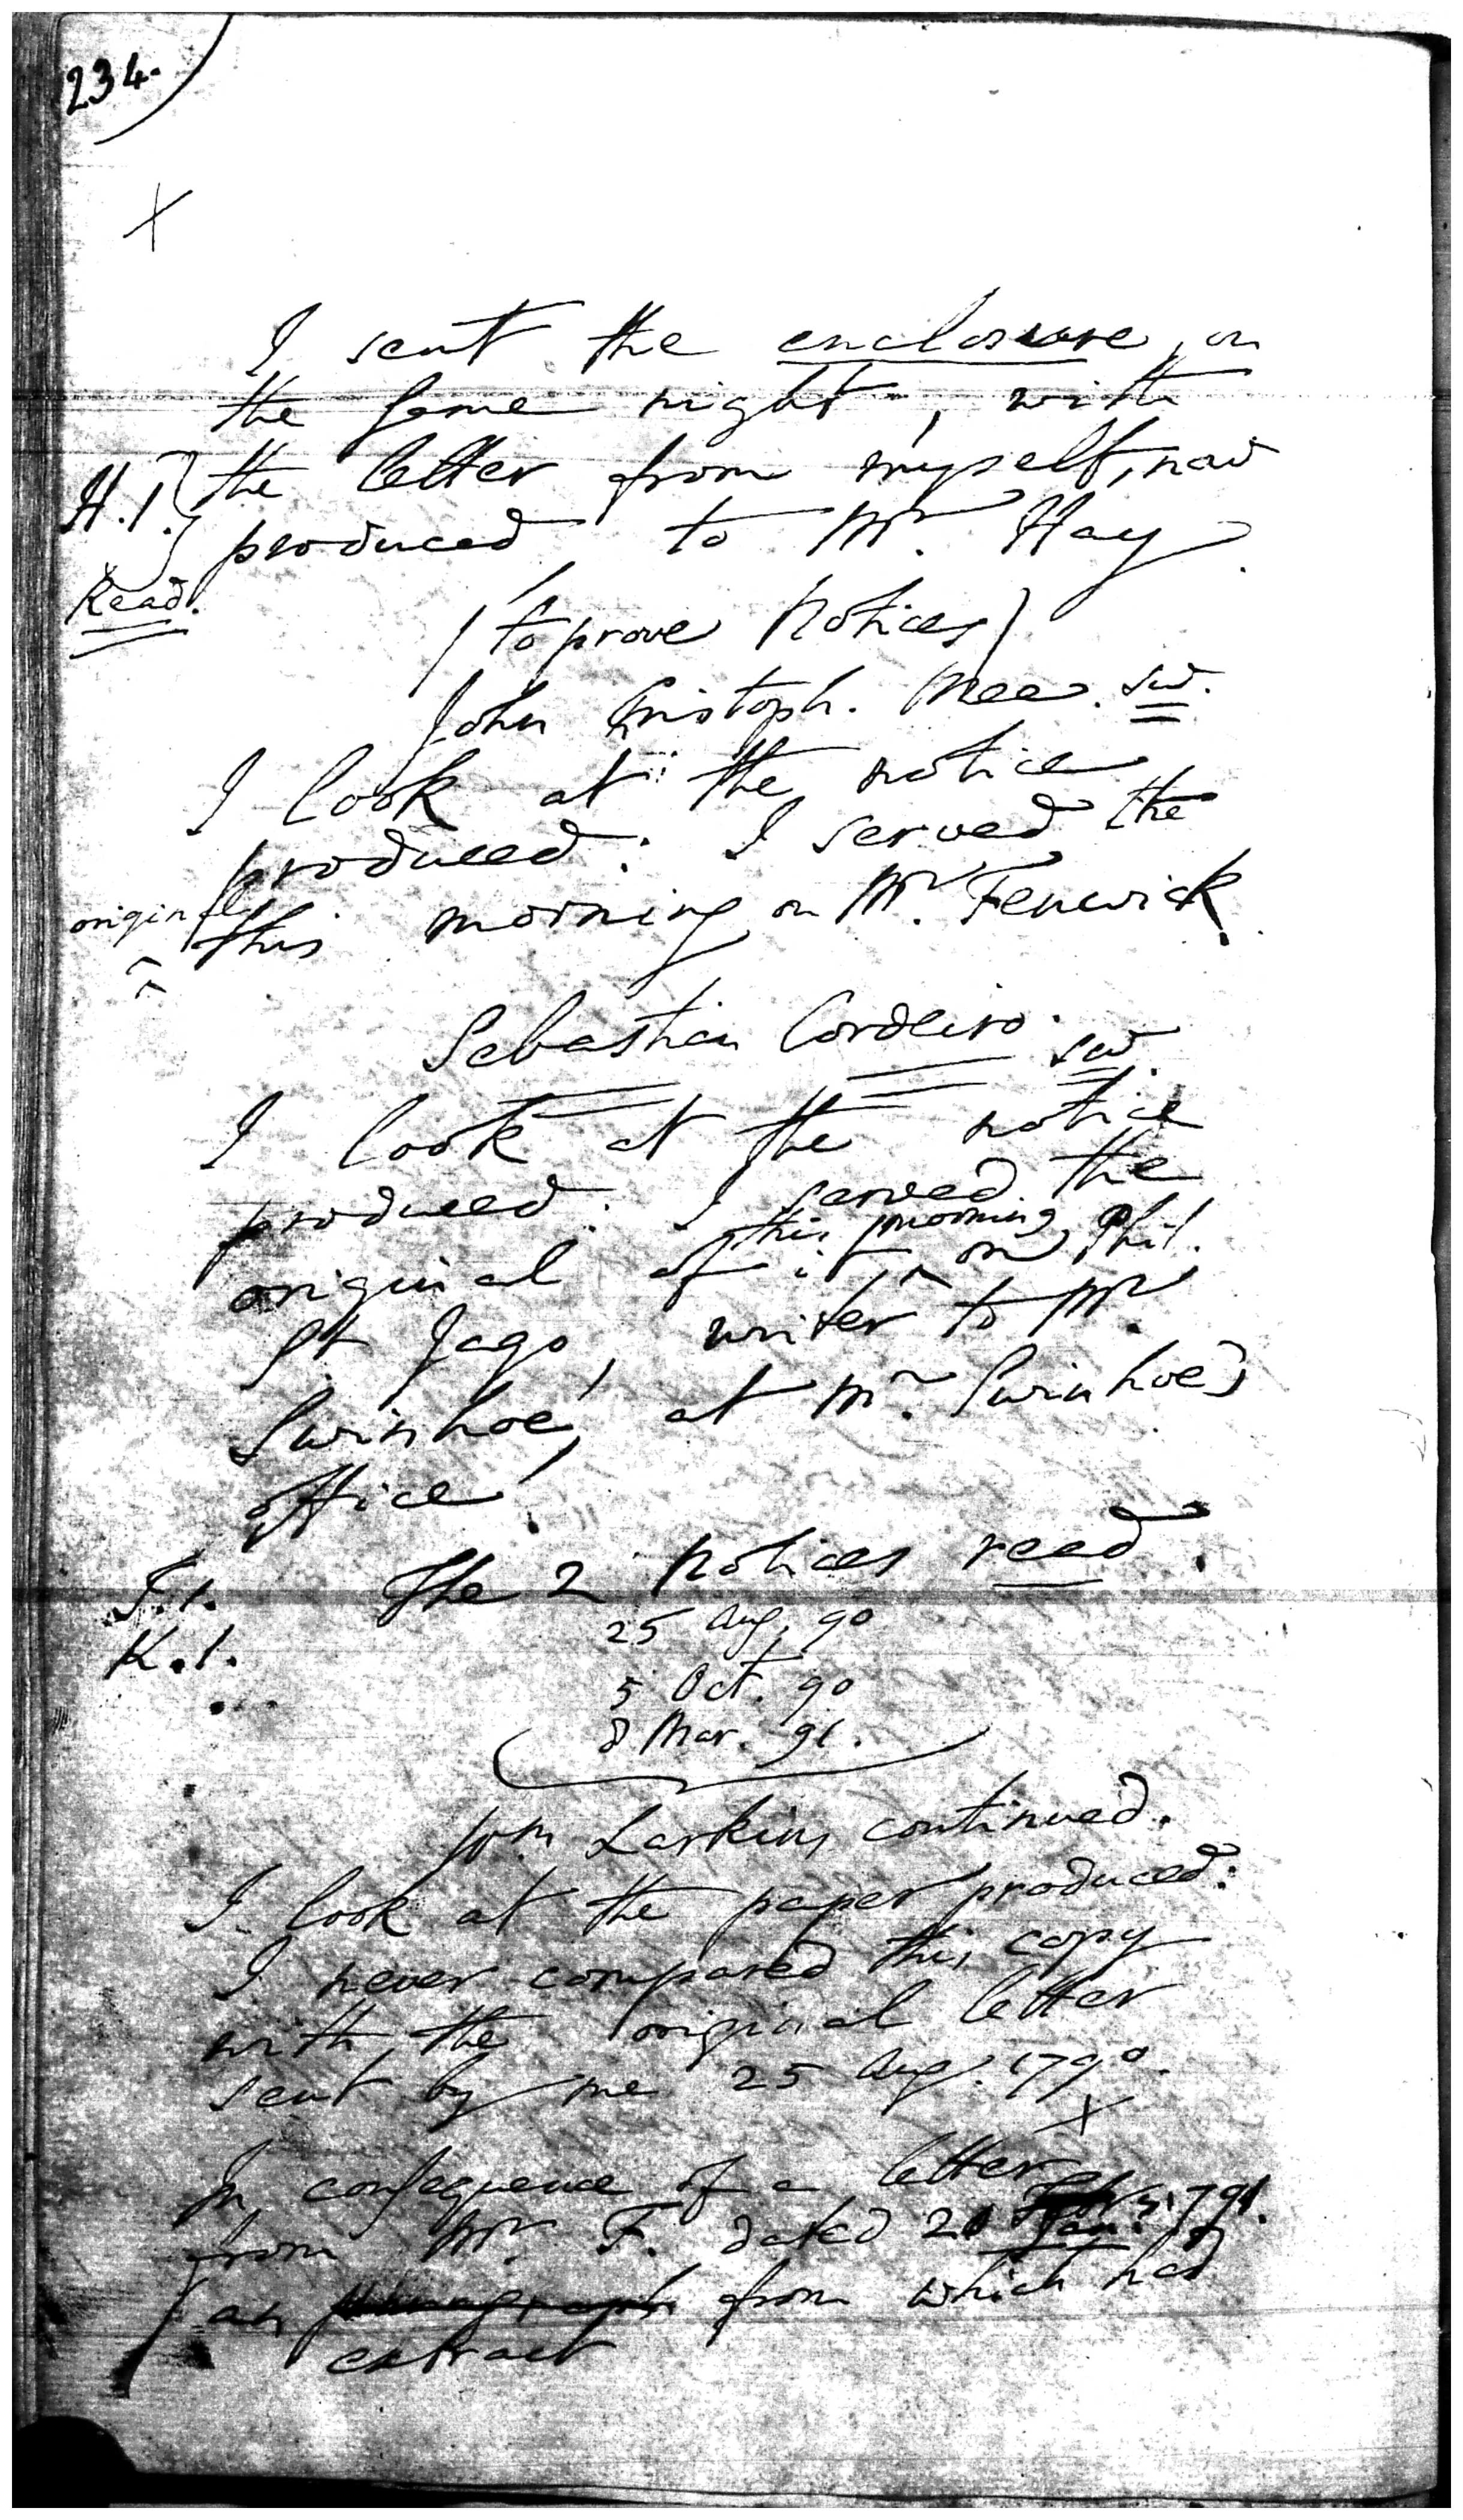 234.
X
I sent the enclosure, on
the same night, with
H.1. the letter from myself, now
produced, to Mr. Hay.
Read.
(to prove Notices)
John Cristoph. Mee. sw.
I look at the notice
produced: I served the
original
this morning on Mr. Fenwick.
Sebastian Cordeiro. sw.
I look at the notice
produced: I served the
this morning
original of it, on Phil.
St Jago, writer to Mr.
Swinhoe, at Mr. Swinhoe's
office.
The 2 Notices read.
I.1.
K.1.
25 Aug. 90
5 Oct. 90
8 Mar. 91.
Wm. Larkins continued.
I look at the paper produced:
I never compared this copy
with the original letter
sent by me 25 Aug. 1790.
X
In consequence of a letter
from Mr. F. dated 20 Jan. 1791.
(an from which had
extract